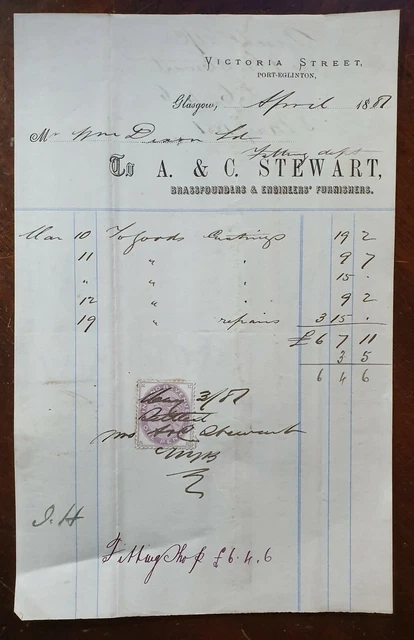 VICTORIA STREET,
PORT-EGLINTON,
Glasgow, April 1887
Mr Wm Dixon Ld
Fitting dept
To A. & C. STEWART,
BRASSFOUNDERS & ENGINEERS' FURNISHERS.
Mar 10 To goods Castings 19 2
11 " " 9 7
" " " 15 .
12 " " 9 2
19 " repairs 3 15 .
£6 7 11
3 5
6 4 6
May 3/87
Settled
A&C Stewart
J. H
Fitting Shop £6.4.6